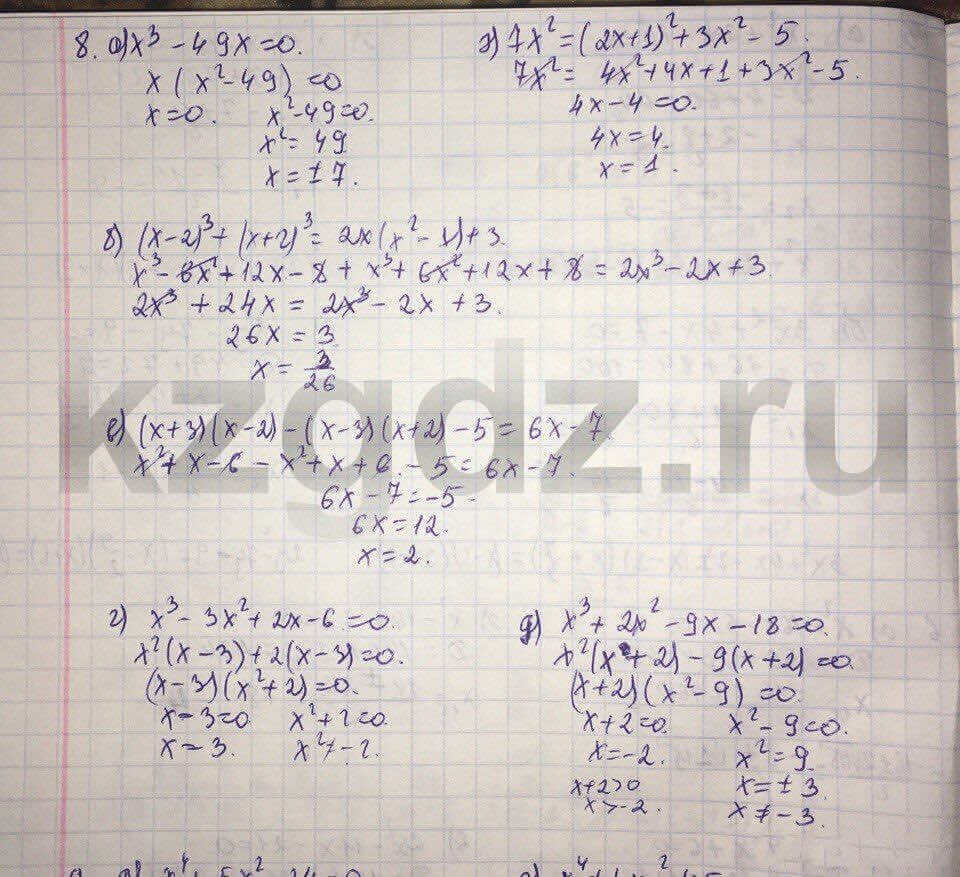 8. а) x³ - 49x = 0.
x (x² - 49) = 0
x = 0. x² - 49 = 0.
x² = 49
x = ±7.
7x² = (2x+1)² + 3x² - 5.
7x² = 4x² + 4x + 1 + 3x² - 5.
4x - 4 = 0.
4x = 4.
x = 1.
б) (x-2)³ + (x+2)³ = 2x(x² - 1) + 3
x³ - 6x² + 12x - 8 + x³ + 6x² + 12x + 8 = 2x³ - 2x + 3
2x³ + 24x = 2x³ - 2x + 3.
26x = 3
x = 3/26
е) (x+3)(x-2) - (x-3)(x+2) - 5 = 6x - 7.
x² + x - 6 - x² + x + 6 - 5 = 6x - 7.
6x - 7 = -5
6x = 12.
x = 2.
г) x³ - 3x² + 2x - 6 = 0.
x²(x-3) + 2(x-3) = 0.
(x-3)(x²+2) = 0.
x - 3 = 0 x² + 2 = 0.
x = 3. x² ≠ -2.
д) x³ + 2x² - 9x - 18 = 0.
x²(x+2) - 9(x+2) = 0
(x+2)(x² - 9) = 0.
x + 2 = 0. x² - 9 = 0.
x = -2. x² = 9
x+2>0 x = ±3.
x > -2. x ≠ -3.
kzgdz.ru